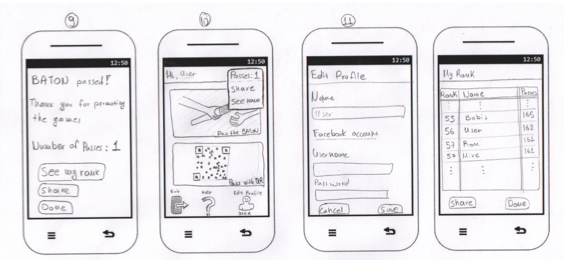 9
12:50
BATON passed!
Thank you for promoting
the games
Number of Passes: 1
See my rank
Share
Done
10
12:50
Hi, User
Passes: 1
Share
See rank
Pass the BATON
Pass with QR
Exit
Help
Edit Profile
11
12:50
Edit Profile
Name
User
Facebook account
Username
Password
Cancel
Save
12:50
My Rank
Rank Name Passes
55 165
56 User 162
57 162
161
Share
Done